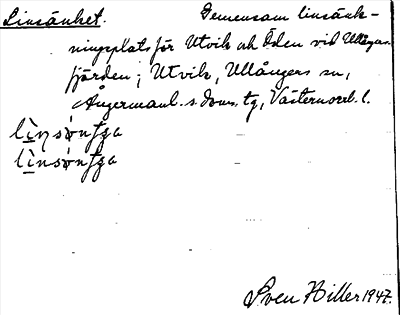 Linsänket. Gemensam linsänk-
ningsplats för Utvik och Öden vid Ullångers
fjärden; Utvik, Ullångers sn,
Ångermanl. s. doms. tg, Västernorrl. l.
Sven Hiller 1947.